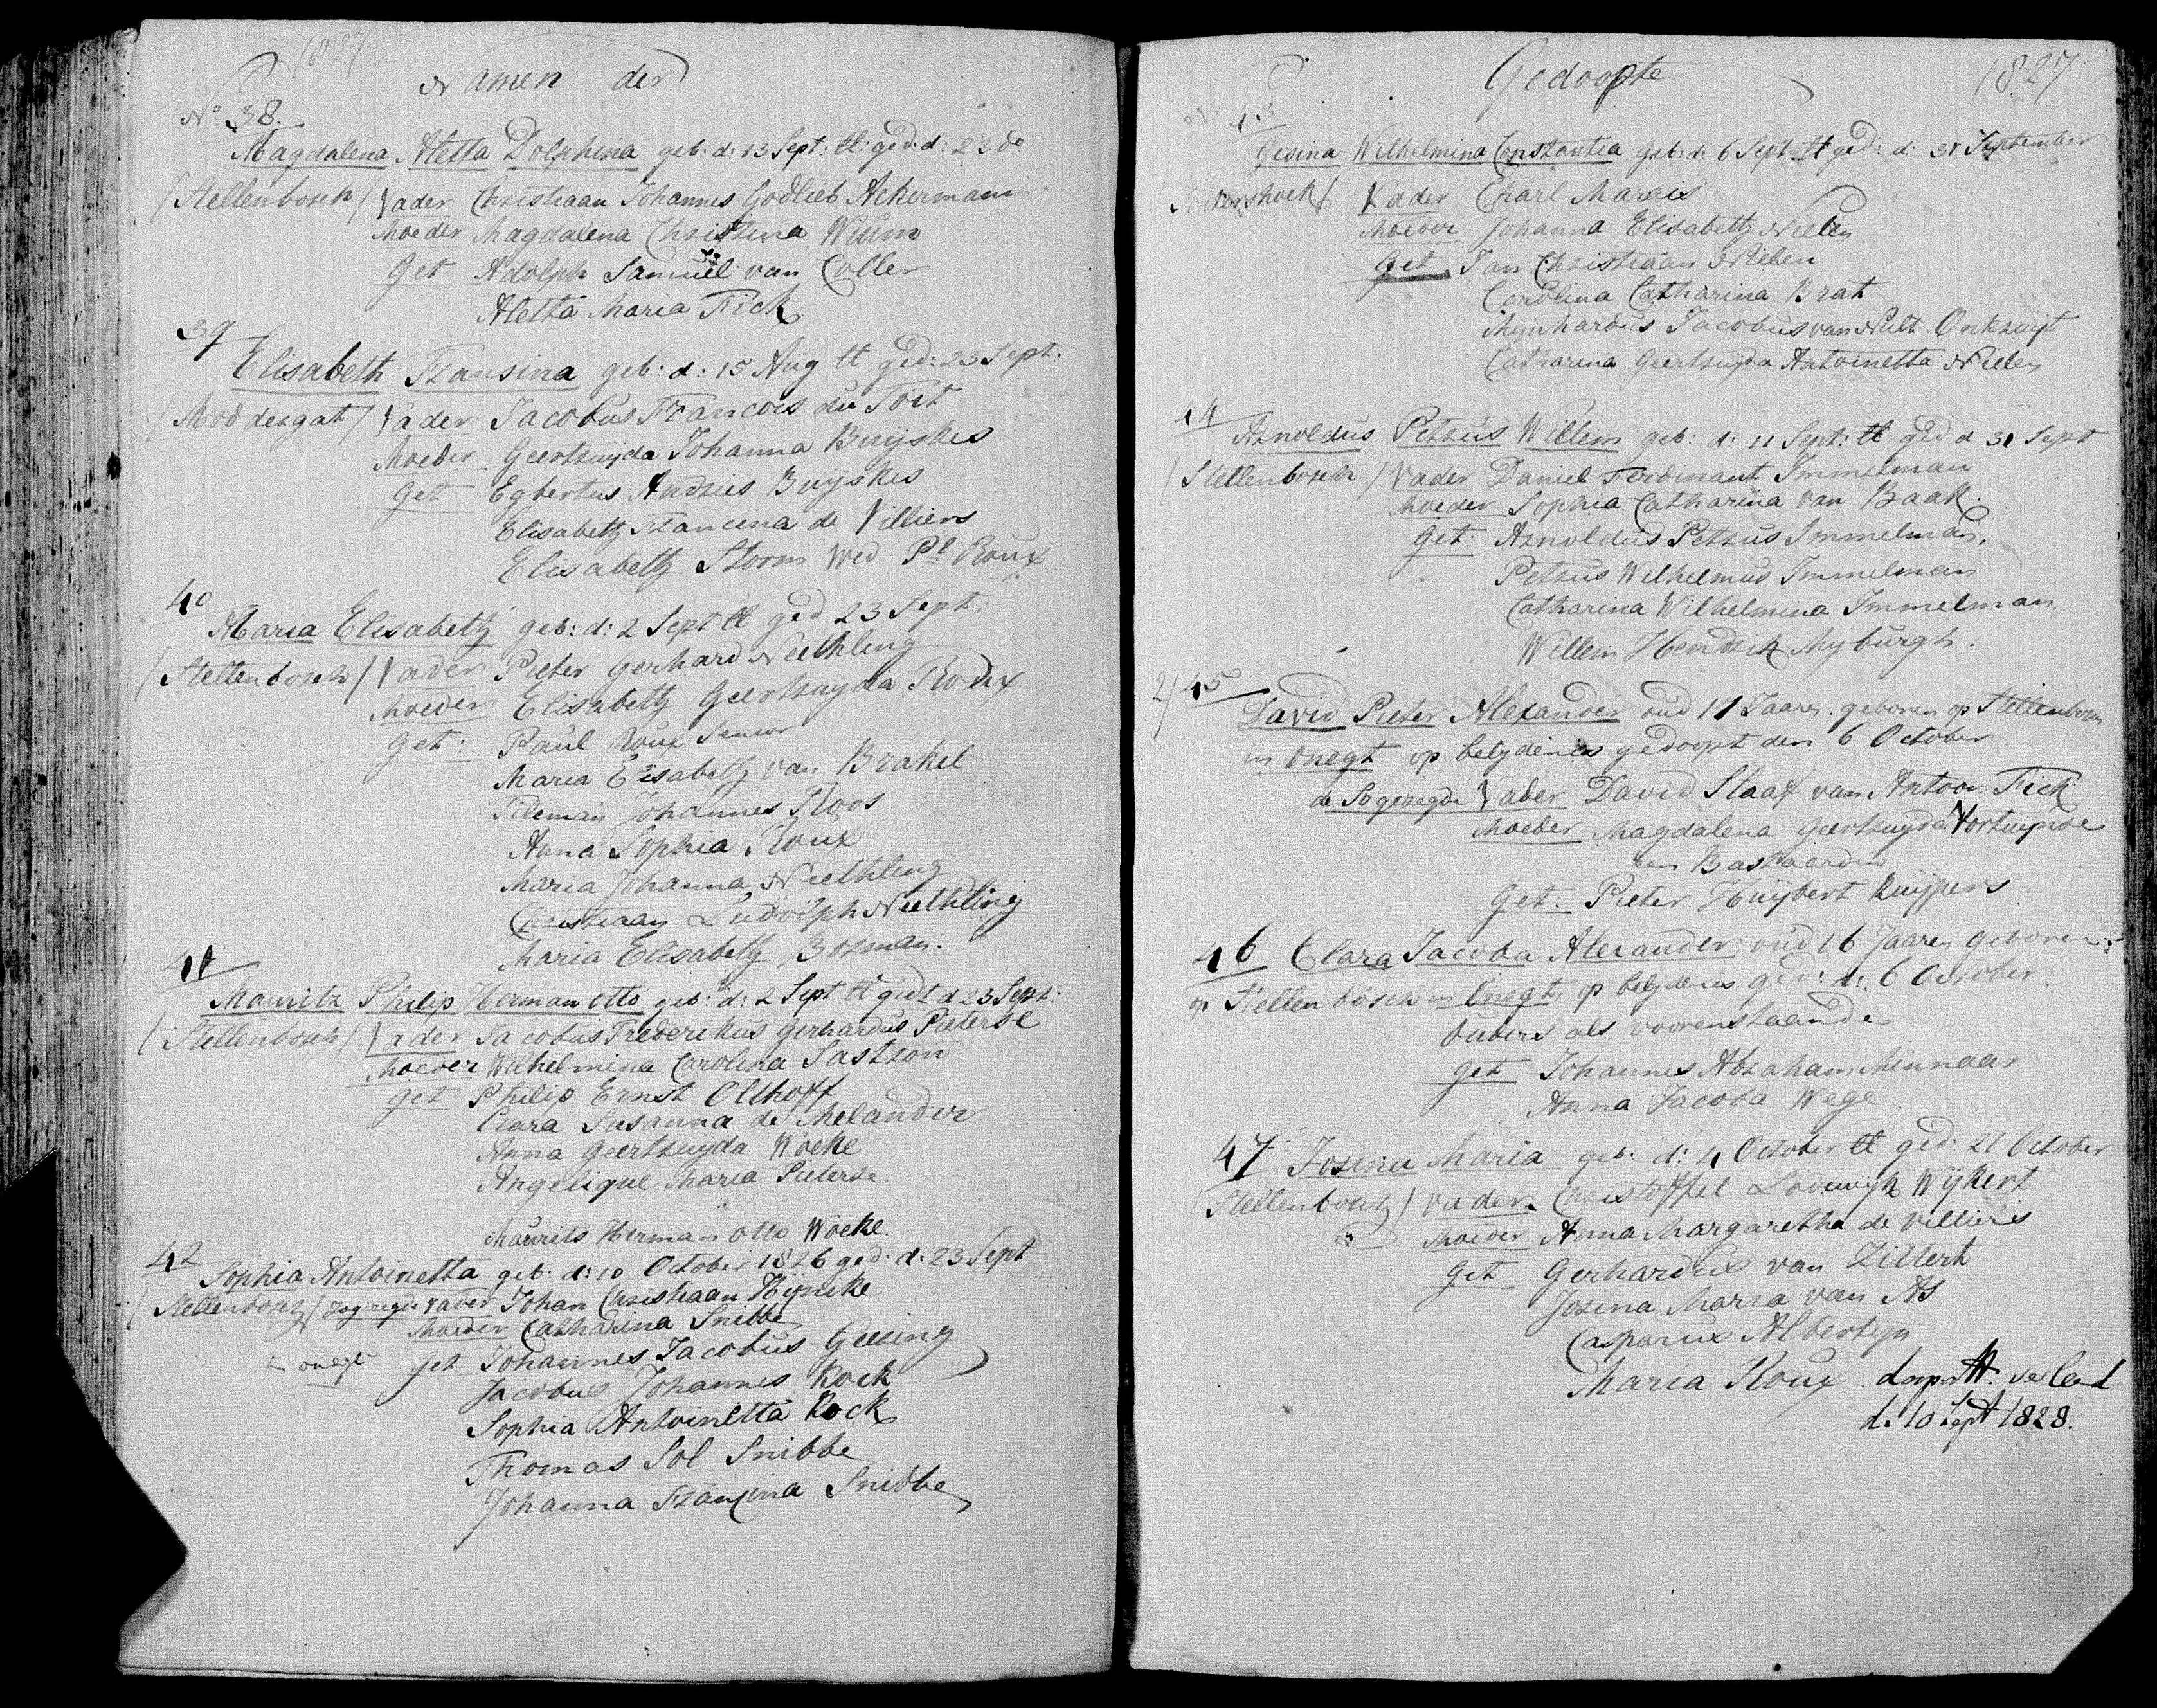 1827
Namen der
No 38.
Magdalena Aletta Dolphina geb: d: 13 Sept: tt: ged: d: 23 do
/Stellenbosch/ Vader Christiaan Johannes Godlieb Ackermann
Moeder Magdalena Christina Wium
Get Adolph Samuel van Coller
Aletta Maria Fick
39
Elisabeth Fransina geb: d: 15 Aug tt ged: 23 Sept:
/Moddergat/ Vader Jacobus Francois du Toit
Moeder Geertruyda Johanna Buyskes
Get Egbertus Andries Buyskes
Elisabeth Francina de Villiers
Elisabeth Storm Wed Pl Roux
40
Maria Elisabeth geb: d: 2 Sept tt ged 23 Sept:
/Stellenbosch/ Vader Pieter Gerhard Neethling
Moeder Elisabeth Geertruyda Roux
Get: Paul Roux Senior
Maria Elisabeth van Brakel
Tileman Johannes Roos
Anna Sophia Roux
Maria Johanna Neethling
Christiaan Ludolph Neethling
Maria Elisabeth Bosman.
41
Mauritz Philip Herman Otto geb: d: 2 Sept tt gedt d 23 Sept:
/Stellenbosch/ Vader Jacobus Frederikus Gerhardus Pieterse
Moeder Wilhelmina Carolina Sastron
get Philip Ernst Olthoff
Clara Susanna de Melander
Anna Geertruyda Woeke
Angelique Maria Pieterse.
Maurits Herman Otto Woeke.
42
Sophia Antoinetta geb: d: 10 October 1826 ged: d: 23 Sept
/Stellenbosch/ zogezegde vader Johan Christiaan Hijneke
Moeder Catharina Snibbe
in onegt Get Johannes Jacobus Geering
Jacobus Johannes Kock
Sophia Antoinetta Kock
Thomas Sol Snibbe
Johanna Francina Snibbe
Gedoopte 1827
No 43
Gesina Wilhelmina Constantia geb: d: 6 Sept: tt ged: d: 30 September
/Jonkershoek/ Vader Charl Marais
Moeder Johanna Elisabeth Nielen
Get Jan Christiaan Nielen
Carolina Catharina Brat
Mynhardus Jacobus van Nult Onkruyt
Catharina Geertruyda Antoinetta Nielen
44
Arnoldus Petrus Willem geb: d: 11 Sept: tt ged d 30 Sept
/Stellenbosch/ Vader Daniel Ferdinant Immelman
Moeder Sophia Catharina van Baak.
Get: Arnoldus Petrus Immelman,
Petrus Wilhelmus Immelman
Catharina Wilhelmina Immelman,
Willem Hendrik Myburgh.
2/ 45
David Pieter Alexander oud 17 Jaaren geboren op Stellenbosch
in Onegt op belydenis gedoopt den 6 October
de So gezegde Vader David Slaaf van Antoon Fick
Moeder Magdalena Geertruyda Fortuijnse
een Bastaardin
Get. Pieter Huijbert Kuijpers
46 Clara Jacoba Alexander oud 16 Jaaren geboren
op Stellenbosch in Onegt, op belydenis ged: d: 6 October
Ouders als voorenstaande
get Johannes Abraham Minnaar
Anna Jacoba Wege
47 Josina Maria geb: d: 4 October tt ged: 21 October
Stellenbosch / Vader Christoffel Lodewyk Wijkert
Moeder Anna Margaretha de Villiers
Get Gerhardus van Zittert
Josina Maria van As
Casparus Albertyn
Maria Roux
d. 10 Sept 1828.